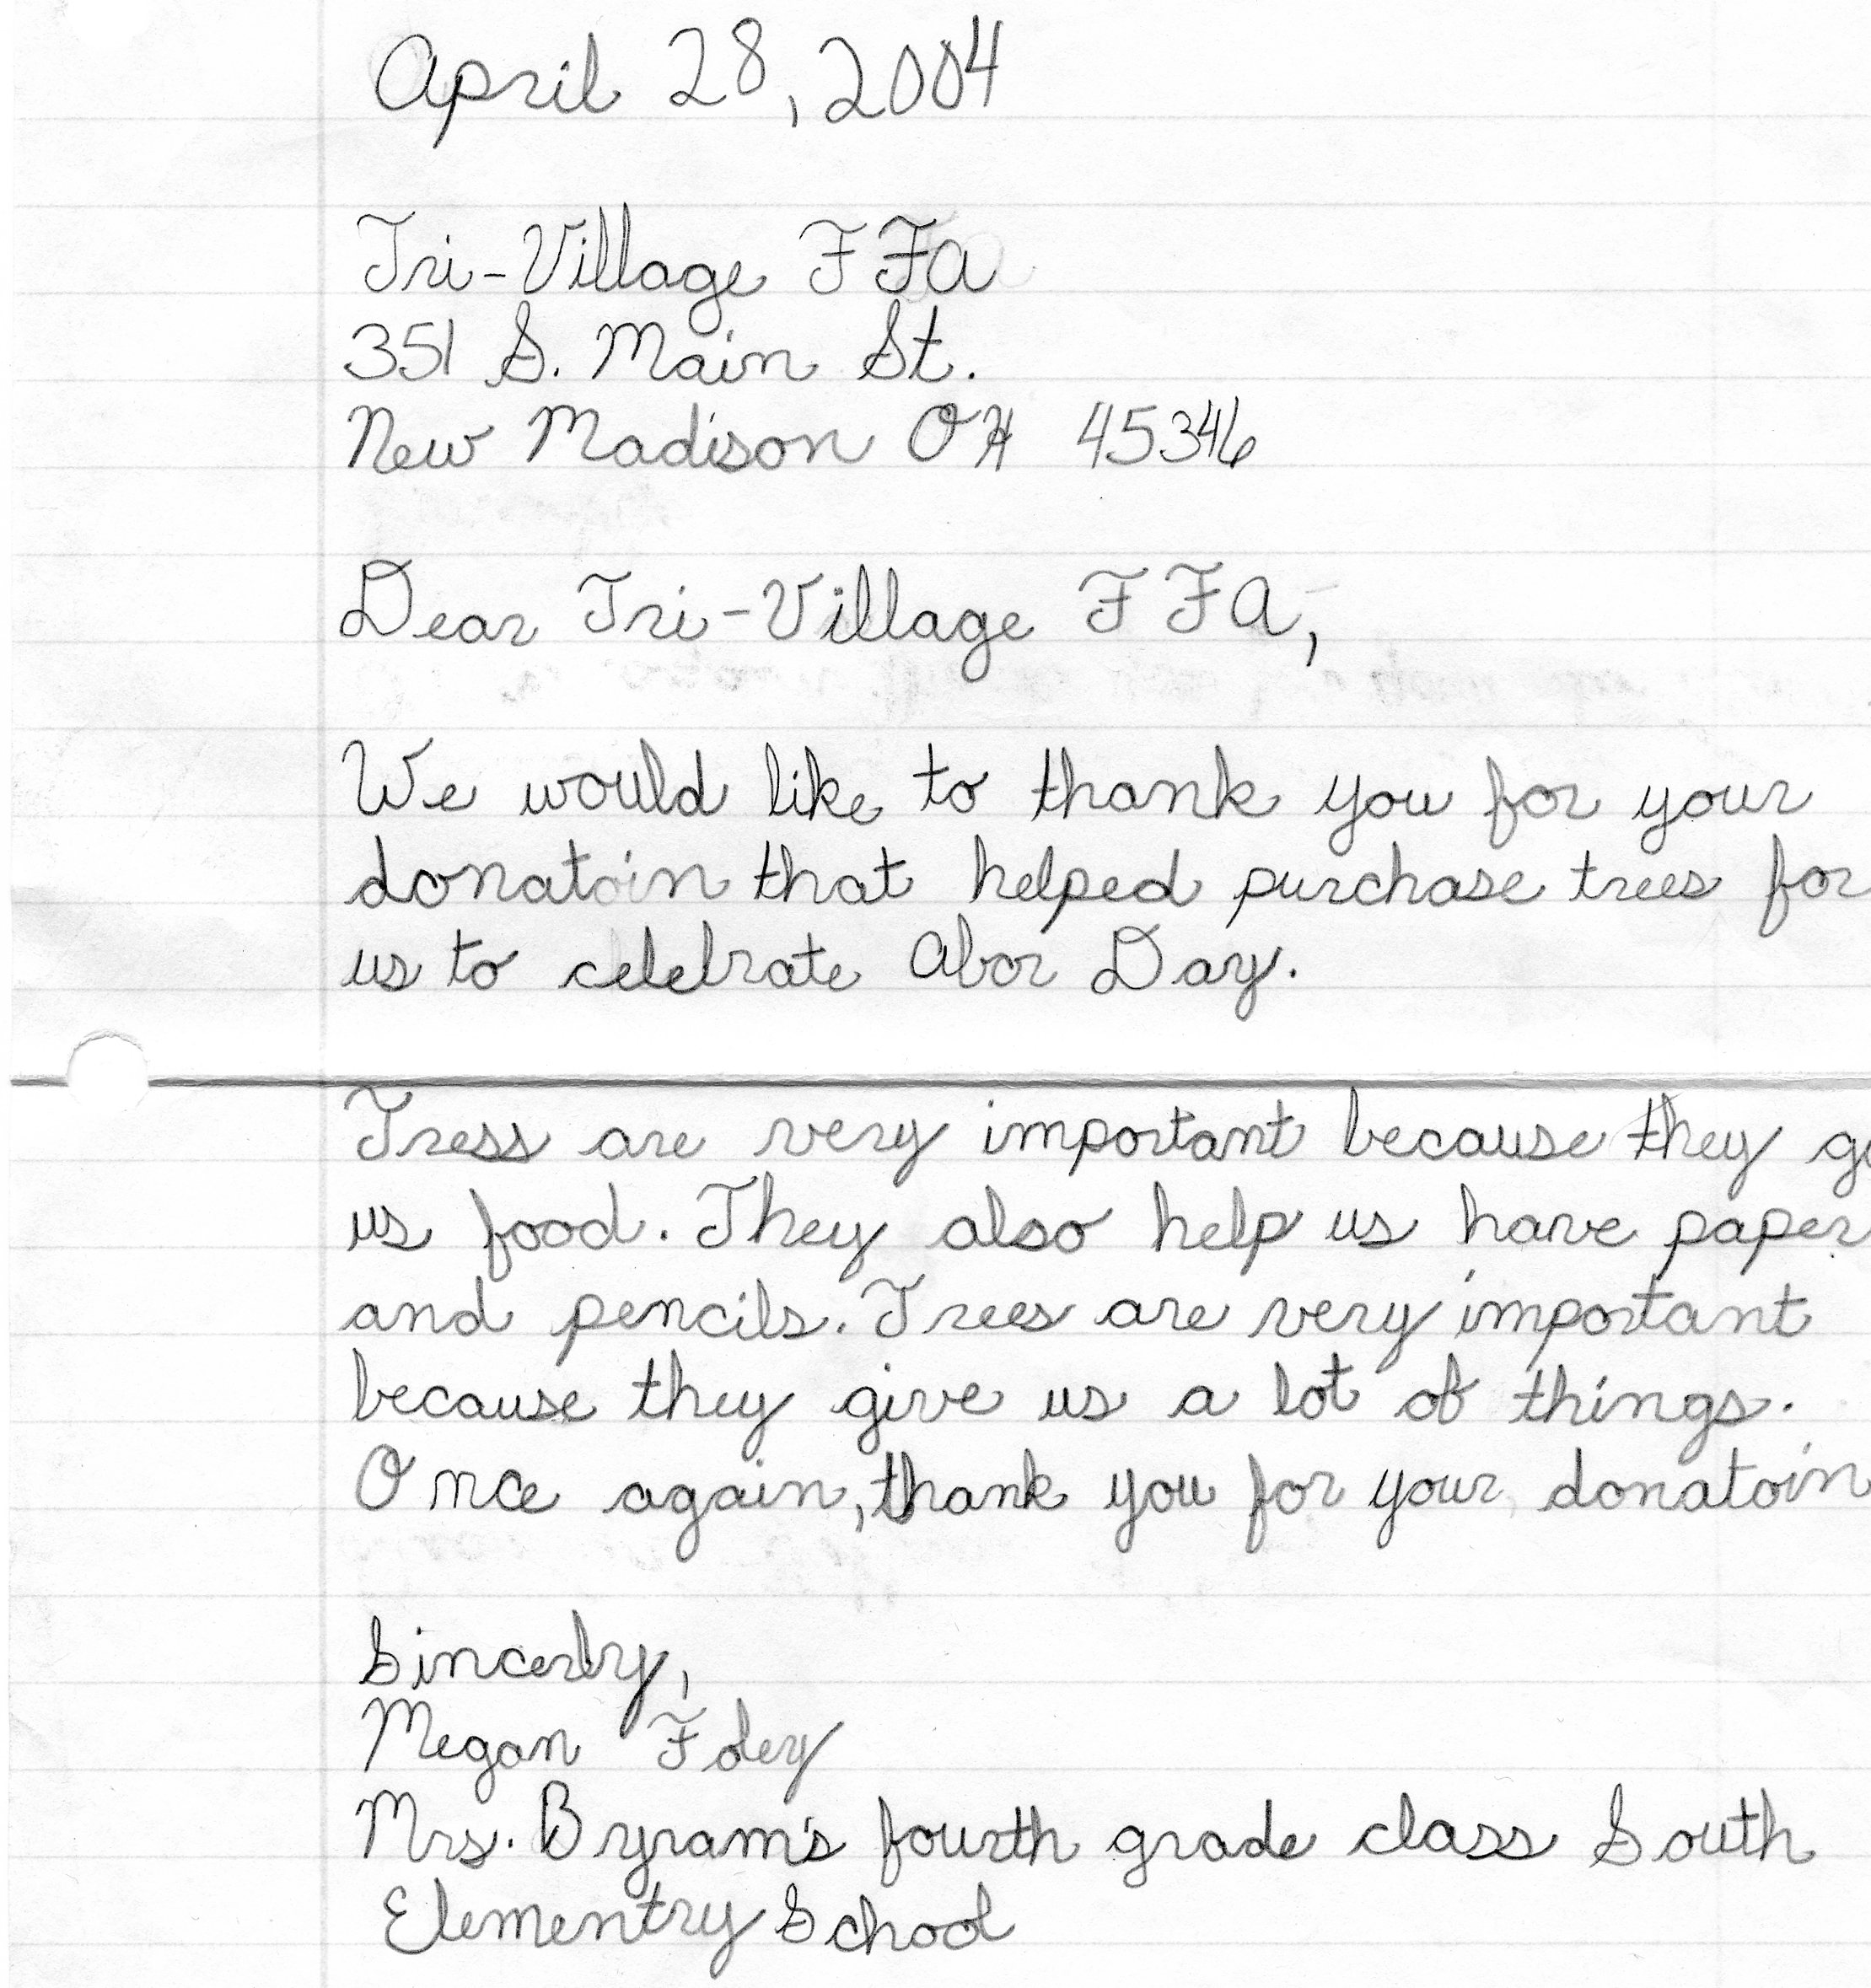 April 28, 2004
Tri-Village FFA
351 S. Main St.
New Madison OH 45346
Dear Tri-Village FFA,
We would like to thank you for your
donatoin that helped purchase trees for
us to celebrate Abor Day.
Tress are very important because they
us food. They also help us have paper
and pencils. Trees are very important
because they give us a lot of things.
Once again, thank you for your donatoin
Sincerly,
Megan Foley
Mrs. Byram's fourth grade class South
Elementry School